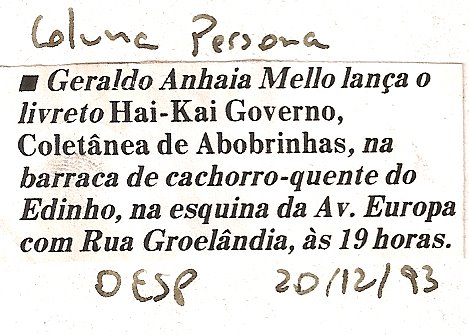 Coluna Persona
■ Geraldo Anhaia Mello lança o
livreto Hai-Kai Governo,
Coletânea de Abobrinhas, na
barraca de cachorro-quente do
Edinho, na esquina da Av. Europa
com Rua Groelândia, às 19 horas.
OESP 20/12/93